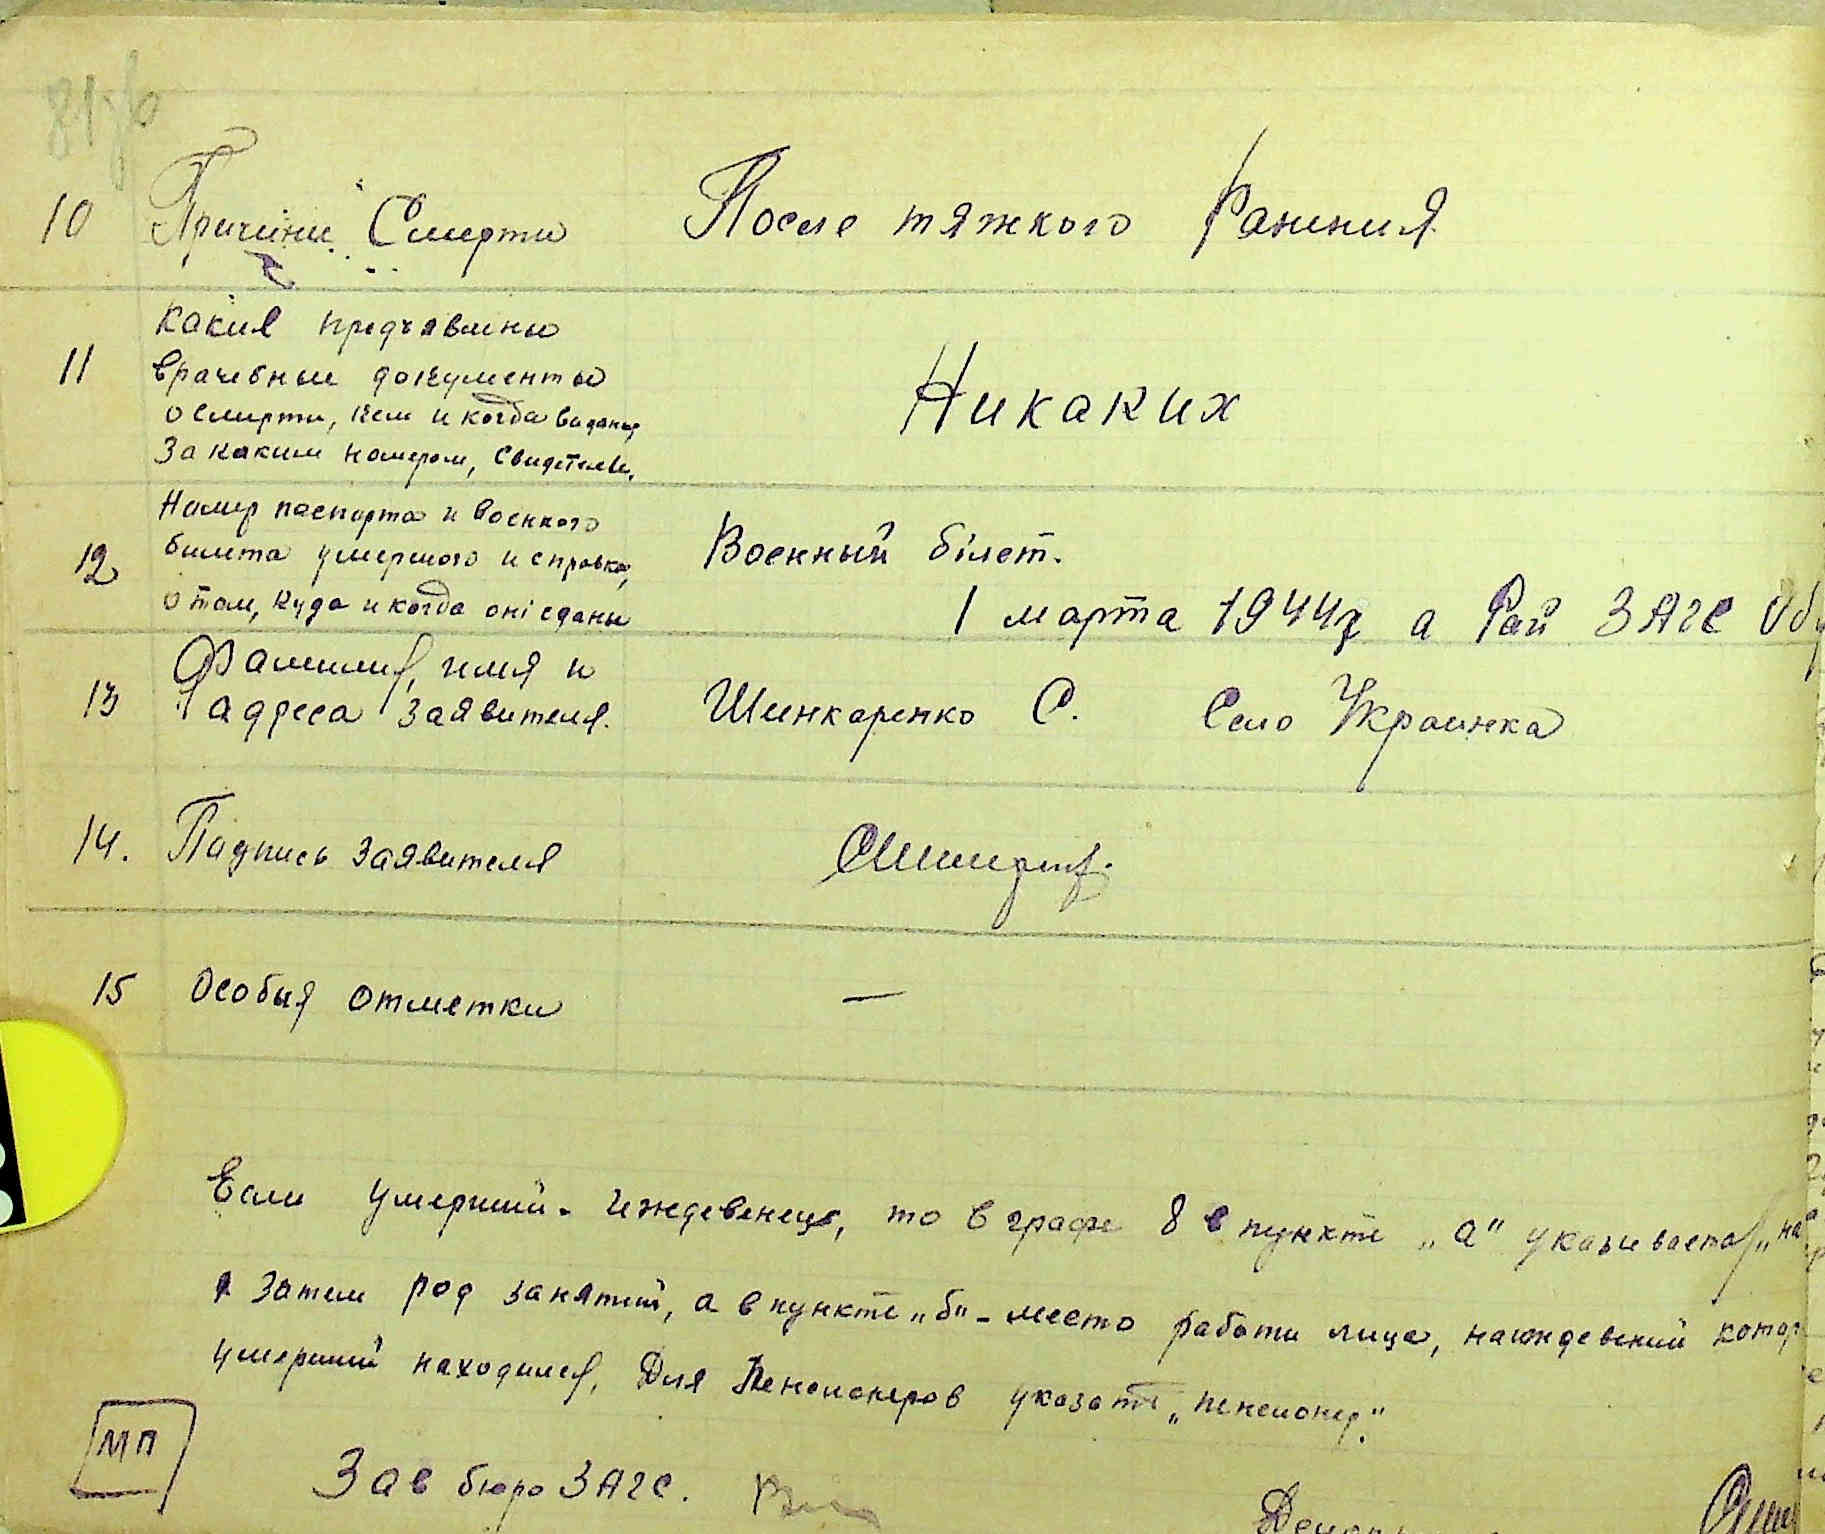 10 Причини Смерти После тяжкого Ранения
Какие предъявлены
11 врачебные документы Никаких
о смерти, кем и когда виданы
За каким номером, Свидетели.
Номер паспорта и военного
12 билета умершого и справка, Военный білет.
о том, куда и когда оні сданы 1 марта 1944г а Рай ЗАГС Обу
Фамилия, имя и
13 адреса заявителя. Шинкаренко С. Село Украинка
14. Падпись заявителя
15 Особыя отметки —
Если умерший - иждевенец, то в графе 8 в пункте „а" указивается „на
а затем род занятий, а в пункте „б" - место работи лица, наиждевений котор
умерший находился, Для Пенсионеров указать „пенсионер".
МП
Зав бюро ЗАГС.